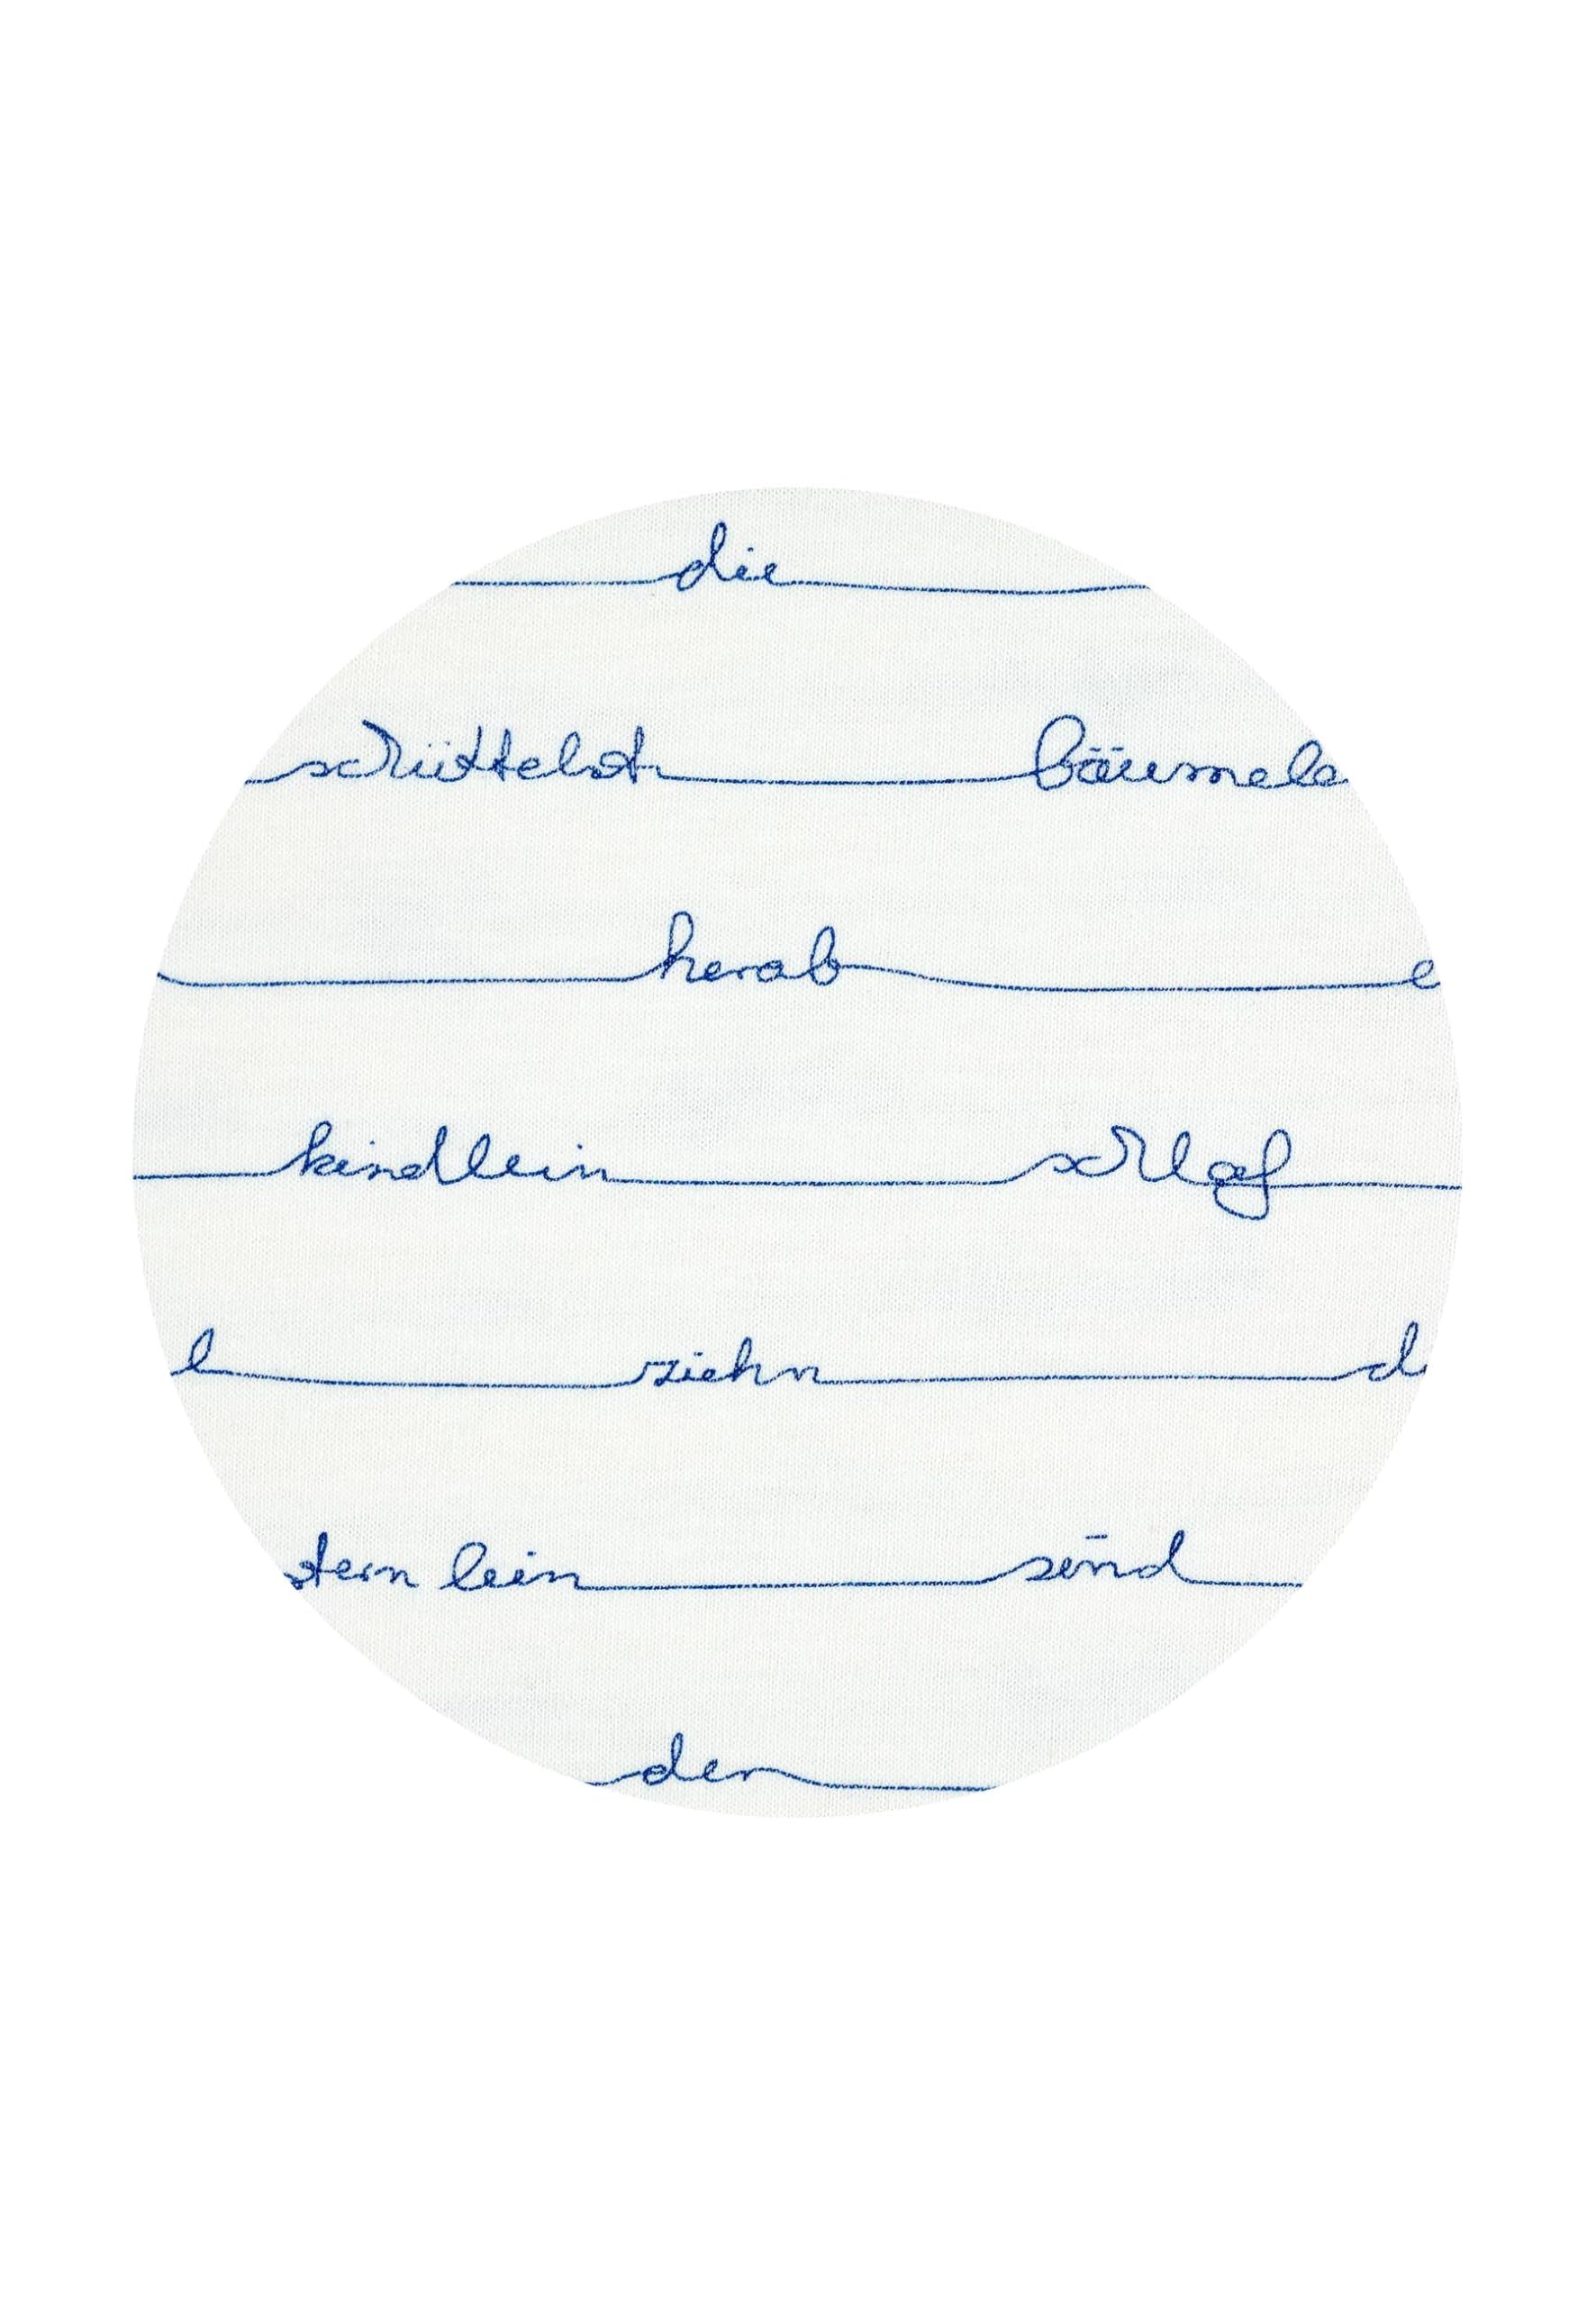 die
schüttelst bäumele
herab e
kindlein schlaf
l ziehn d
sternlein sind
der